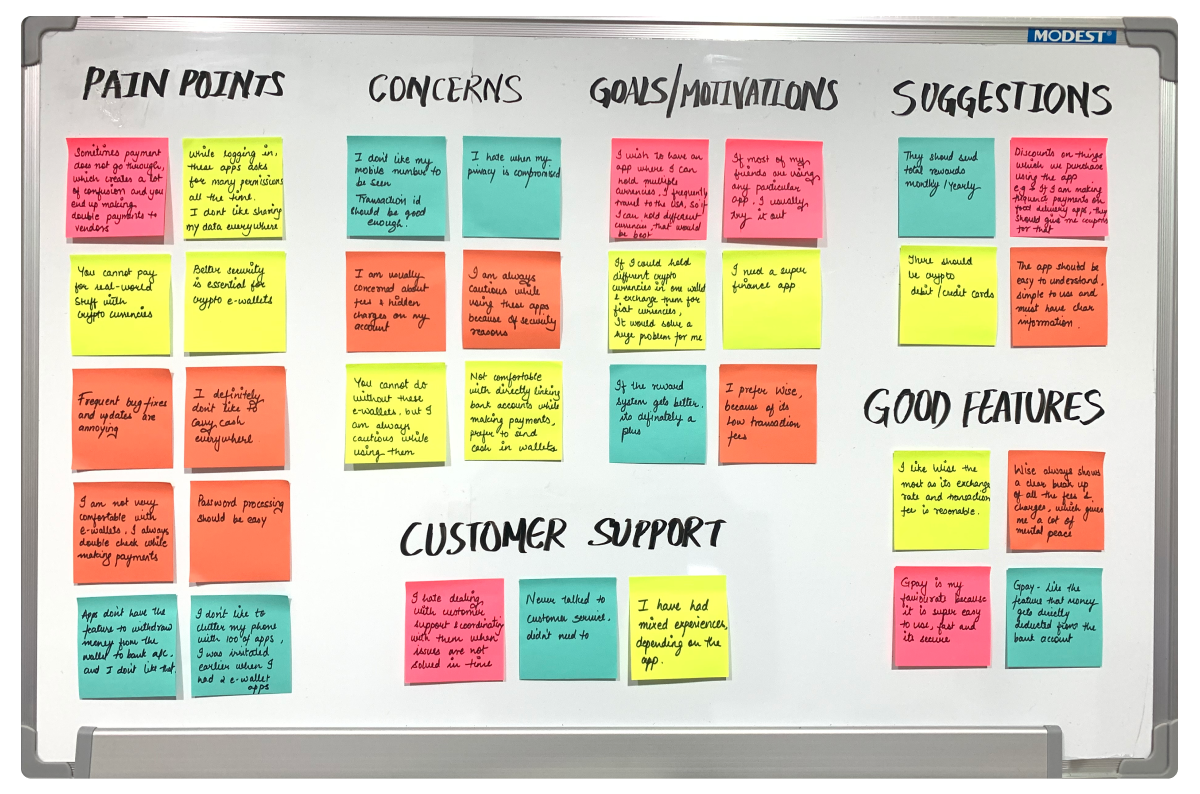 MODEST®
PAIN POINTS
Sometimes payment
does not go through,
which creates a lot
of confusion and you
end up making
double payments to
vendors
While logging in,
these apps asks
for many permissions
all the time.
I dont like sharing
my data everywhere
You cannot pay
for real-world
stuff with
crypto currencies
Better security
is essential for
crypto e-wallets
Frequent bug-fixes
and updates are
annoying
I definitely
don't like to
carry cash
everywhere
I am not very
comfortable with
e-wallets. I always
double check while
making payments
Password processing
should be easy
Apps don't have the
feature to withdraw
money from the
wallet to bank a/c.
and I don't like that.
I don't like to
clutter my phone
with 100 of apps,
I was irritated
earlier when I
had 2 e-wallet
apps
CONCERNS
I don't like my
mobile number to
be seen
Transaction id
should be good
enough.
I hate when my
privacy is compromised
I am usually
concerned about
fees & hidden
charges on my
account
I am always
cautious while
using these apps
because of security
reasons
You cannot do
without these
e-wallets. but I
am always
cautious while
using them
Not comfortable
with directly linking
bank accounts while
making payments,
prefer to send
cash in wallets
GOALS/MOTIVATIONS
I wish to have an
app where I can
hold multiple
currencies, I frequently
travel to the USA, so if
I can hold different
currencies, that would
be best
If most of my
friends are using
any particular
app. I usually
try it out
If I could hold
different crypto
currencies in one wallet
& exchange them for
fiat currencies,
It would solve a
huge problem for me
I need a super
finance app
If the reward
system gets better.
its definately a
plus
I prefer Wise,
because of its
low transaction
fees
SUGGESTIONS
They should send
total rewards
monthly/yearly
Discounts on things
which we purchase
using the app
e.g & If I am making
frequent payments on
food delivery apps, they
should give me coupons
for that
There should
be crypto
debit/credit cards
The app should be
easy to understand,
simple to use and
must have clear
information.
GOOD FEATURES
I like Wise the
most as its exchange
rate and transaction
fee is resonable.
Wise always shows
a clear break up
of all the fees &
charges, which gives
me a lot of
mental peace
Gpay is my
favourate because
it is super easy
to use, fast and
its secure
Gpay - Like the
feature that money
gets directly
deducted from the
bank account
CUSTOMER SUPPORT
I hate dealing
with customer
support & coordinating
with them when
issues are not
solved in time
Never talked to
customer service.
didn't need to
I have had
mixed experiences,
depending on the
app.